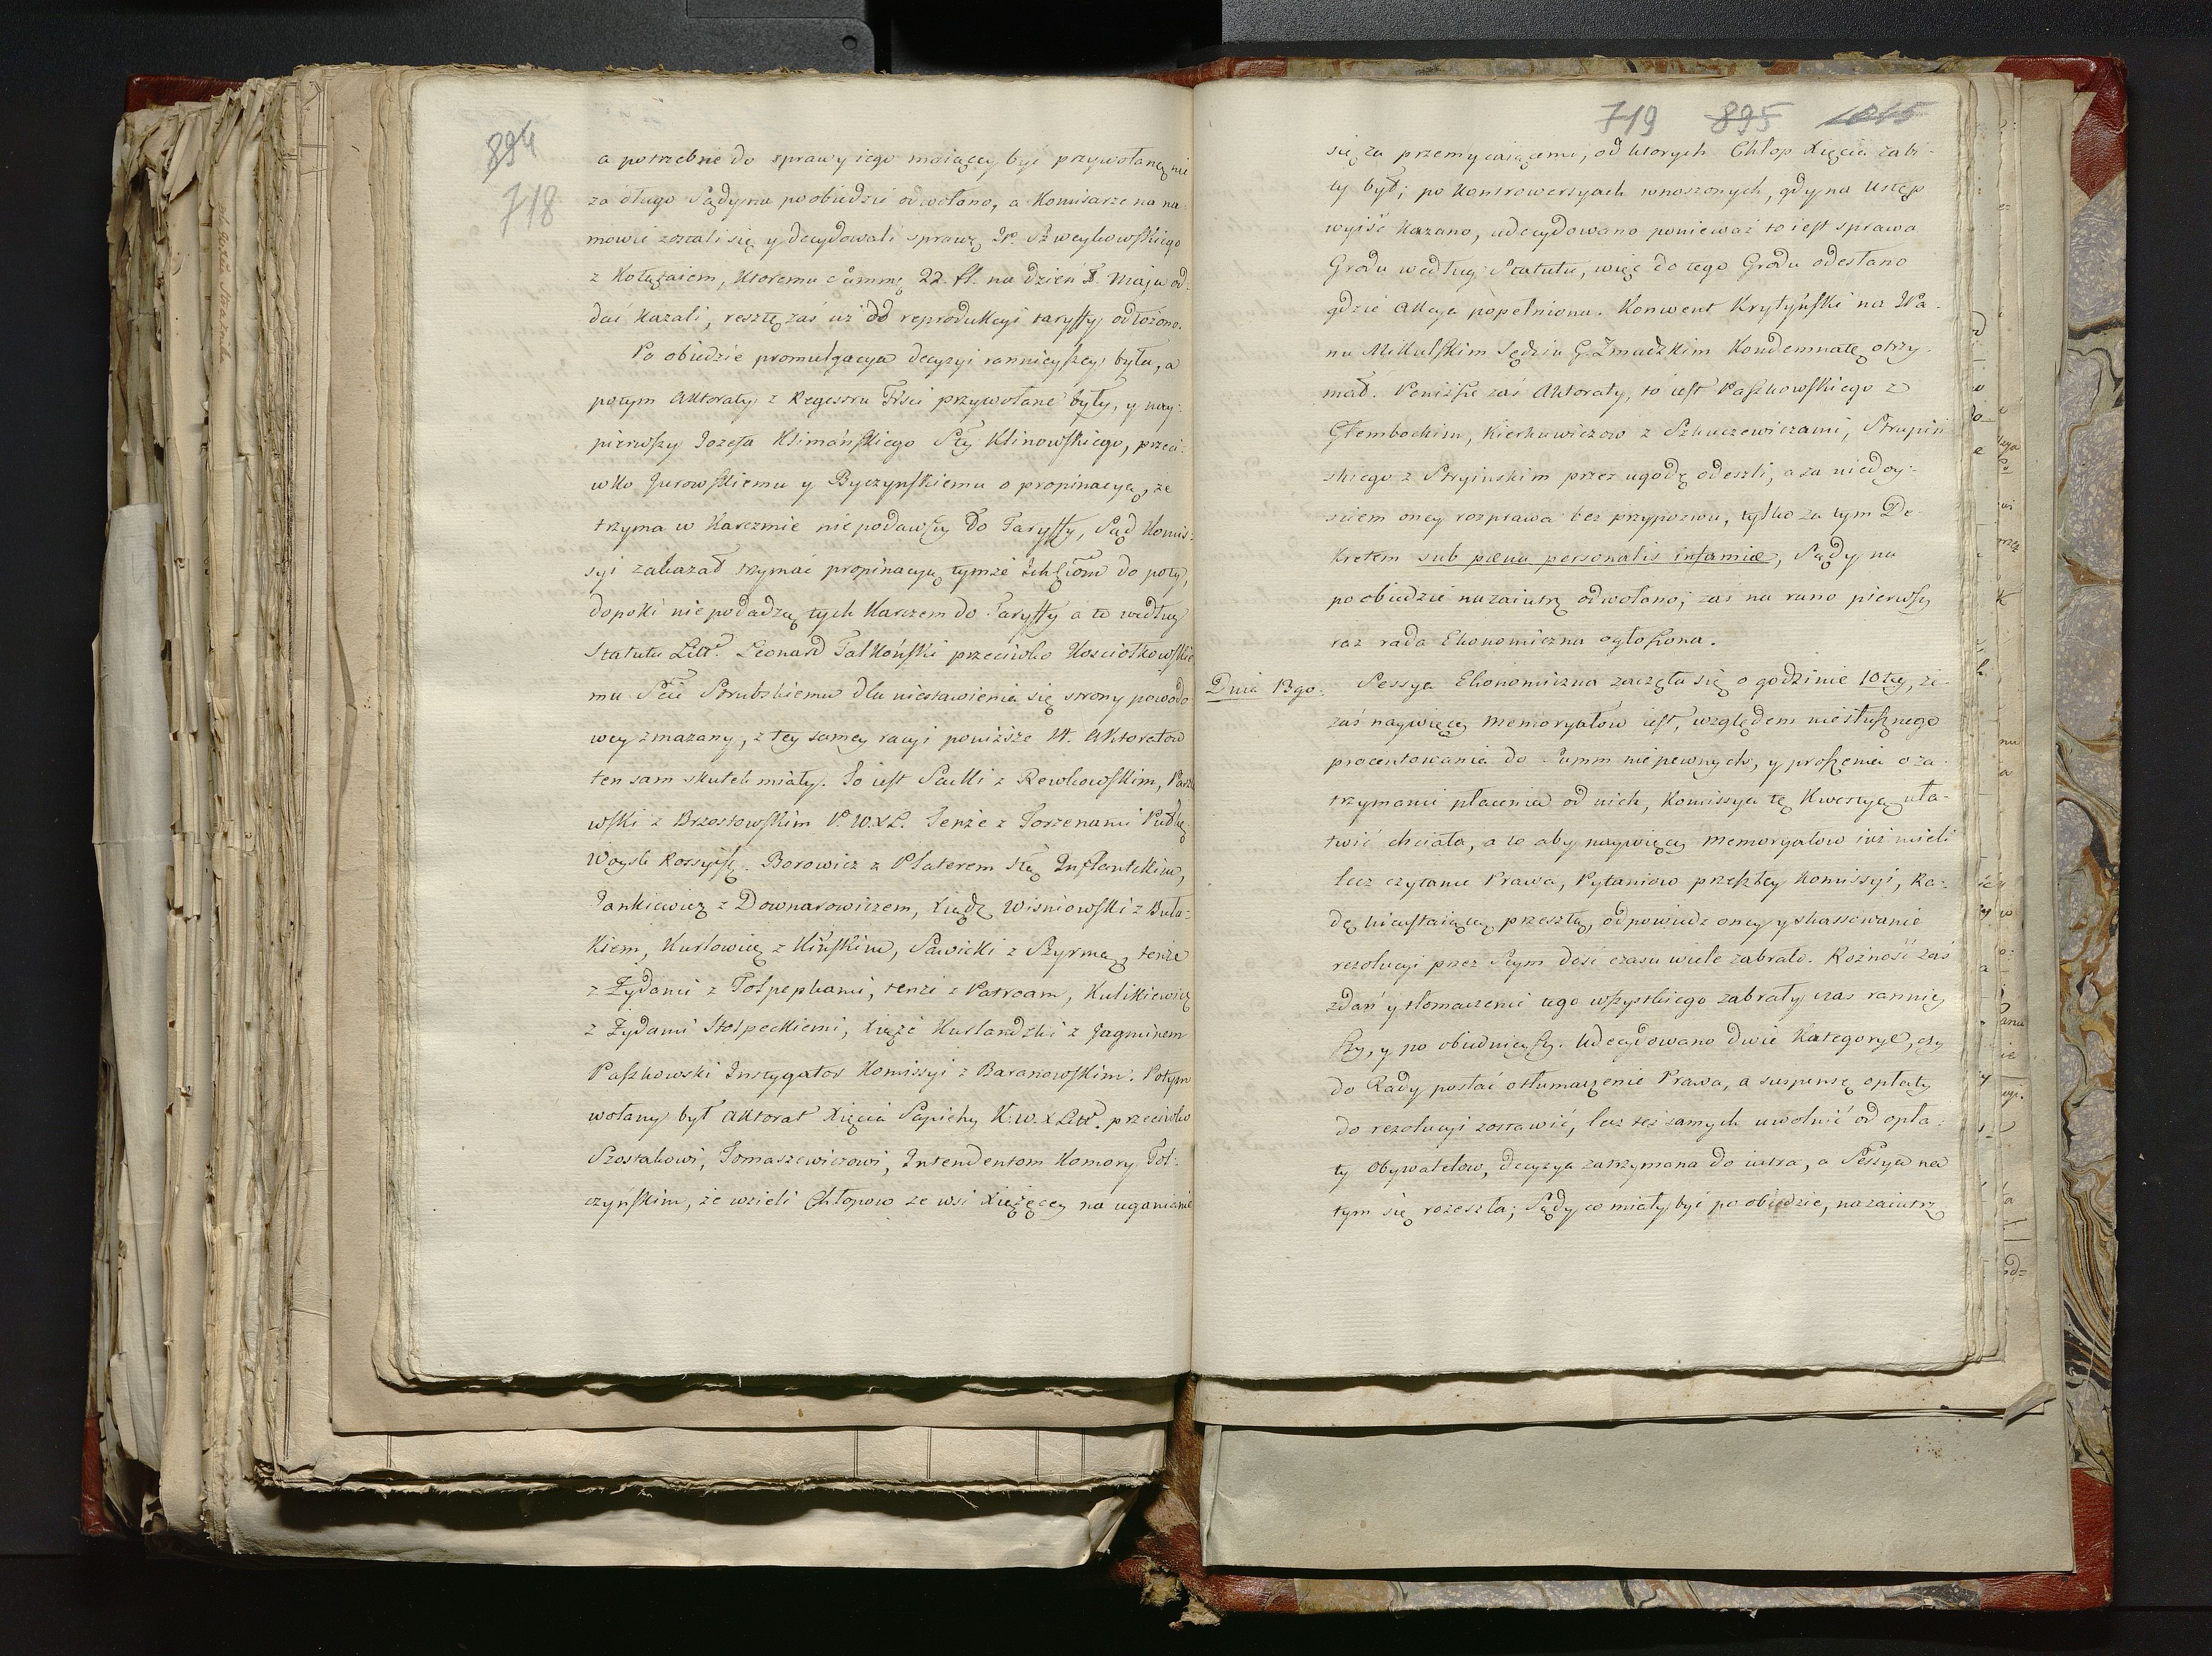 894
718
a potrzebne do sprawy iego maiącey być przywołaną nie
za długo Sądy na poobiedzie odwołano, a Komisarze na na-
mowie zostali się y decydowali sprawę JP. Szweykowskiego
z Kołłątaiem, ktoremu summę 22. fl. na dzień 8. Maja od-
dać kazali, resztę zaś iż do reprodukcyi taryffy odłożono.
Po obiedzie promulgacya decyzyi rannieyszey była, a
potym Aktoraty z Regestru Trści przywołane były, y nay-
pierwszy Jozefa Klimańskiego Sty Klinowskiego, przeci-
wko Jurowskiemu y Byczynskiemu o propinacyą, że
trzyma w Karczmie nie podawszy do Taryffy, Sąd Komis-
syi zakazał trzymać propinacyą tymże Ichmciom do poty,
dopoki nie podadzą tych Karczem do Taryffy a to według
Statutu Litt. Leonard Talkoński przeciwko Kosciołkowskie
mu Scie Strubskiemu dla niestawienia się strony powodo-
wey zmazany, z tey samey racyi poniższe 14. Aktoratow
ten sam skutek miały. To iest Sacki z Rewkowskim, Parze
wski z Brzostowskim P. W. X L. Tenże z Torzenami Pułk.
Woysk Rossyisk. Borowicz z Platerem Stą Inflantskim,
Jankiewicz z Downarowiczem, Xiądz Wisniowski z Buła-
kiem, Kurlowicz z Kińskim, Sawicki z Szyrmą, tenże
z Żydami z Tołpephami, tenże z Patrcam, Kulikiewicz
z Żydami Stołpeckiemi, Xiąże Kurlandzki z Jagminem
Paszkowski Instygator Komissyi z Baranowskim. Potym
wołany był Aktorat Xięcia Sapiehy K. W. X Litt. przeciwko
Szostakowi, Tomaszewiczowi, Intendentom Komory Toł-
czyńskim, że wzieli Chłopow ze wsi Xiążęcey na uganianie
719 895 1015
się za przemycaiącemi, od ktorych Chłop Xięcia zabi-
ty był; po Kontrowersyach wnoszonych, gdy na Ustęp
wyiść kazano, udecydowano ponieważ to iest sprawa
Grodu według Statutu, więc do tego Grodu odesłano
gdzie Akcya popełniona. Konwent Krytyński na JPa-
nu Mikulskim Sędziu G. Zmudzkim Kondemnatę otrzy-
mał. Poniższe zaś Aktoraty, to iest Paszkowskiego z
Głembockim, Kierkuwiczow z Szkuczewiczami, Strupiń
skiego z Stryinskim przez ugodę odeszli, a za niedoy-
sciem oney rozprawa bez przypozwu, tylko za tym De-
kretem sub pœna personalis infamiæ, Sądy na
poobiedzie nazaiutrz odwołano; zaś na rano pierwszy
raz rada Ekonomiczna ogłoszona.
Dnia 13go. Sessya Ekonomiczna zaczęła się o godzinie 10tey, że
zaś naywięcey memoryałow iest, względem niesłusznego
procentowania do Summ niepewnych, y proszenia o za-
trzymanie płacenia od nich, Komissya tę Kwestyą uła-
twić chciała, a to aby naywięcey memoryałow iuż mieli
lecz czytanie Prawa, Pytaniow przeszłey Komissyi, Ra-
dę nieustaiącą przeszłą, odpowiedz oney y skassowanie
rezolucyi przez Seym dość czasu wiele zabrało. Rożność zaś
zdań y tłomaczenie tego wszystkiego zabrały czas ranniey
szy, y po obiednieyszy. Udecydowano dwie Kategorye, czy
do Rady posłać o tłumaczenie Prawa, a suspensę opłaty
do rezolucyi zostawić, lecz też samych uwolnić od opła-
ty Obywatelow, decyzya zatrzymana do iutra, a Sessya na
tym się rozeszła; Sądy co miały być po obiedzie, nazaiutrz